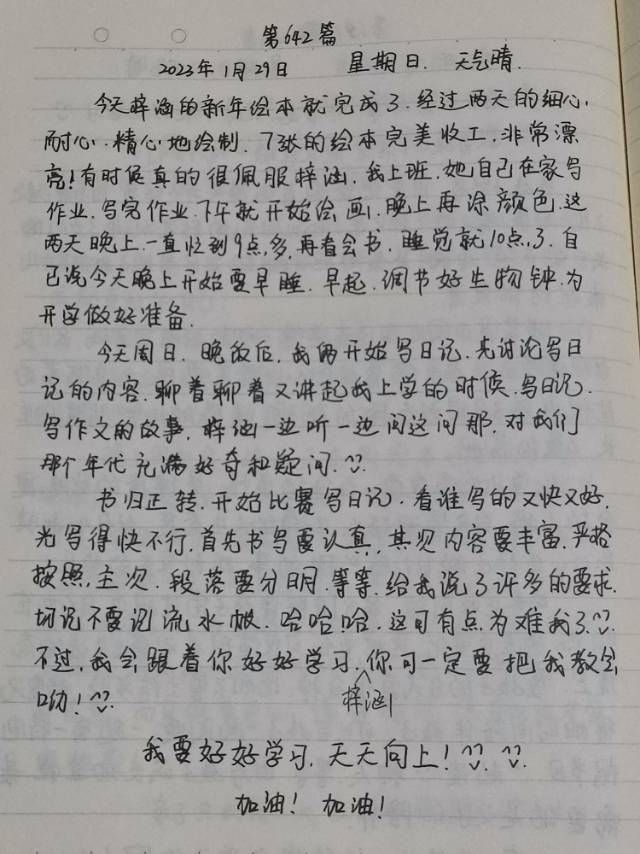 第642篇
2023年1月29日 星期日. 天气晴.
今天梓涵的新年绘本就完成了.经过两天的细心.
耐心.精心地绘制.7张的绘本完美收工,非常漂
亮!有时候真的很佩服梓涵.我上班,她自己在家写
作业.写完作业.下午就开始绘画.晚上再涂颜色.这
两天晚上.一直忙到9点,多,再看会书.睡觉就10点,了.自
己说今天晚上开始要早睡.早起.调节好生物钟.为
开学做好准备.
今天周日.晚饭后,我俩开始写日记.先讨论写日
记的内容.聊着聊着又讲起我上学的时候.写日记.
写作文的故事,梓涵一边听一边问这问那,对我们
那个年代充满好奇和疑问.^^
书归正转.开始比赛写日记.看谁写的又快又好,
光写得快不行.首先书写要认真,其次内容要丰富.严格
按照,主次.段落要分明.等等.给我说了许多的要求.
切记不要记流水帐.哈哈哈.这可有点为难我了.^^
不过,我会跟着你好好学习.你可一定要把我教会
呦!^^ 梓涵
我要好好学习.天天向上!^^.^^.
加油! 加油!